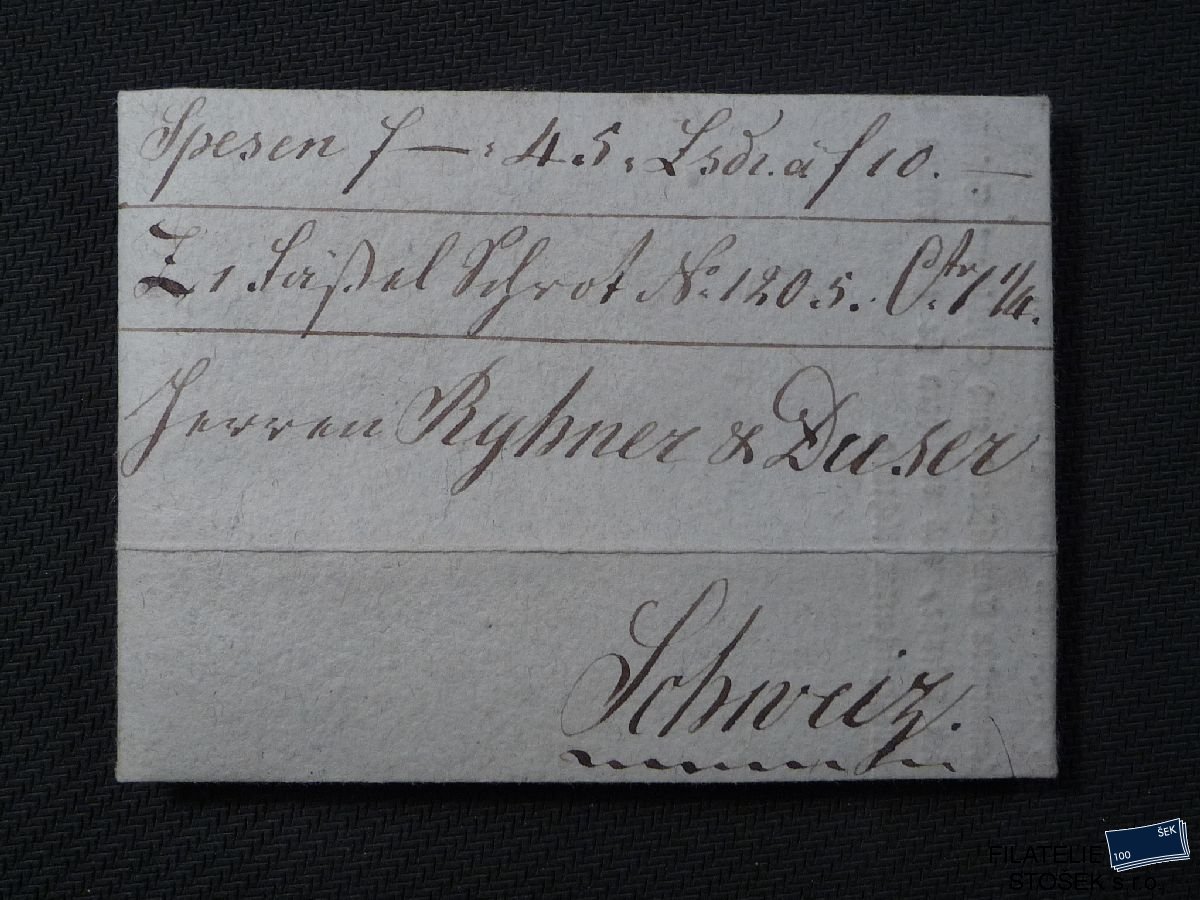 Spesen f —: 45. Lsdr. à f 10. —
Z 1 Fäßel Schrot No. 1205. Ctr. 1 1/4.
Herren Ryhner & Duser
Schweiz.
ŠEK
100
FILATELIE
STOŠEK s.r.o.